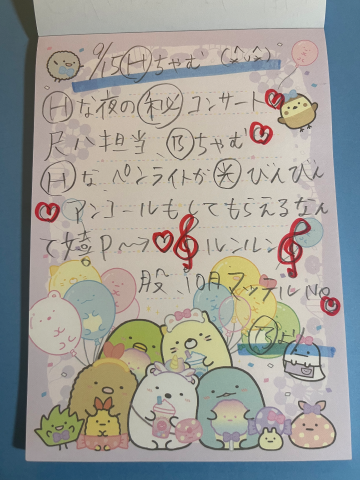 9/15Ⓗちゃむ(^x^)
Ⓗな夜の㊙コンサート
尺八担当、Ⓑちゃむ
Ⓗな ペンライトが Ⓧびんびん
アンコールもしてもらえるなん
て嬉P〜ラ ルンルン
股、10月アップルNo
Ⓑより